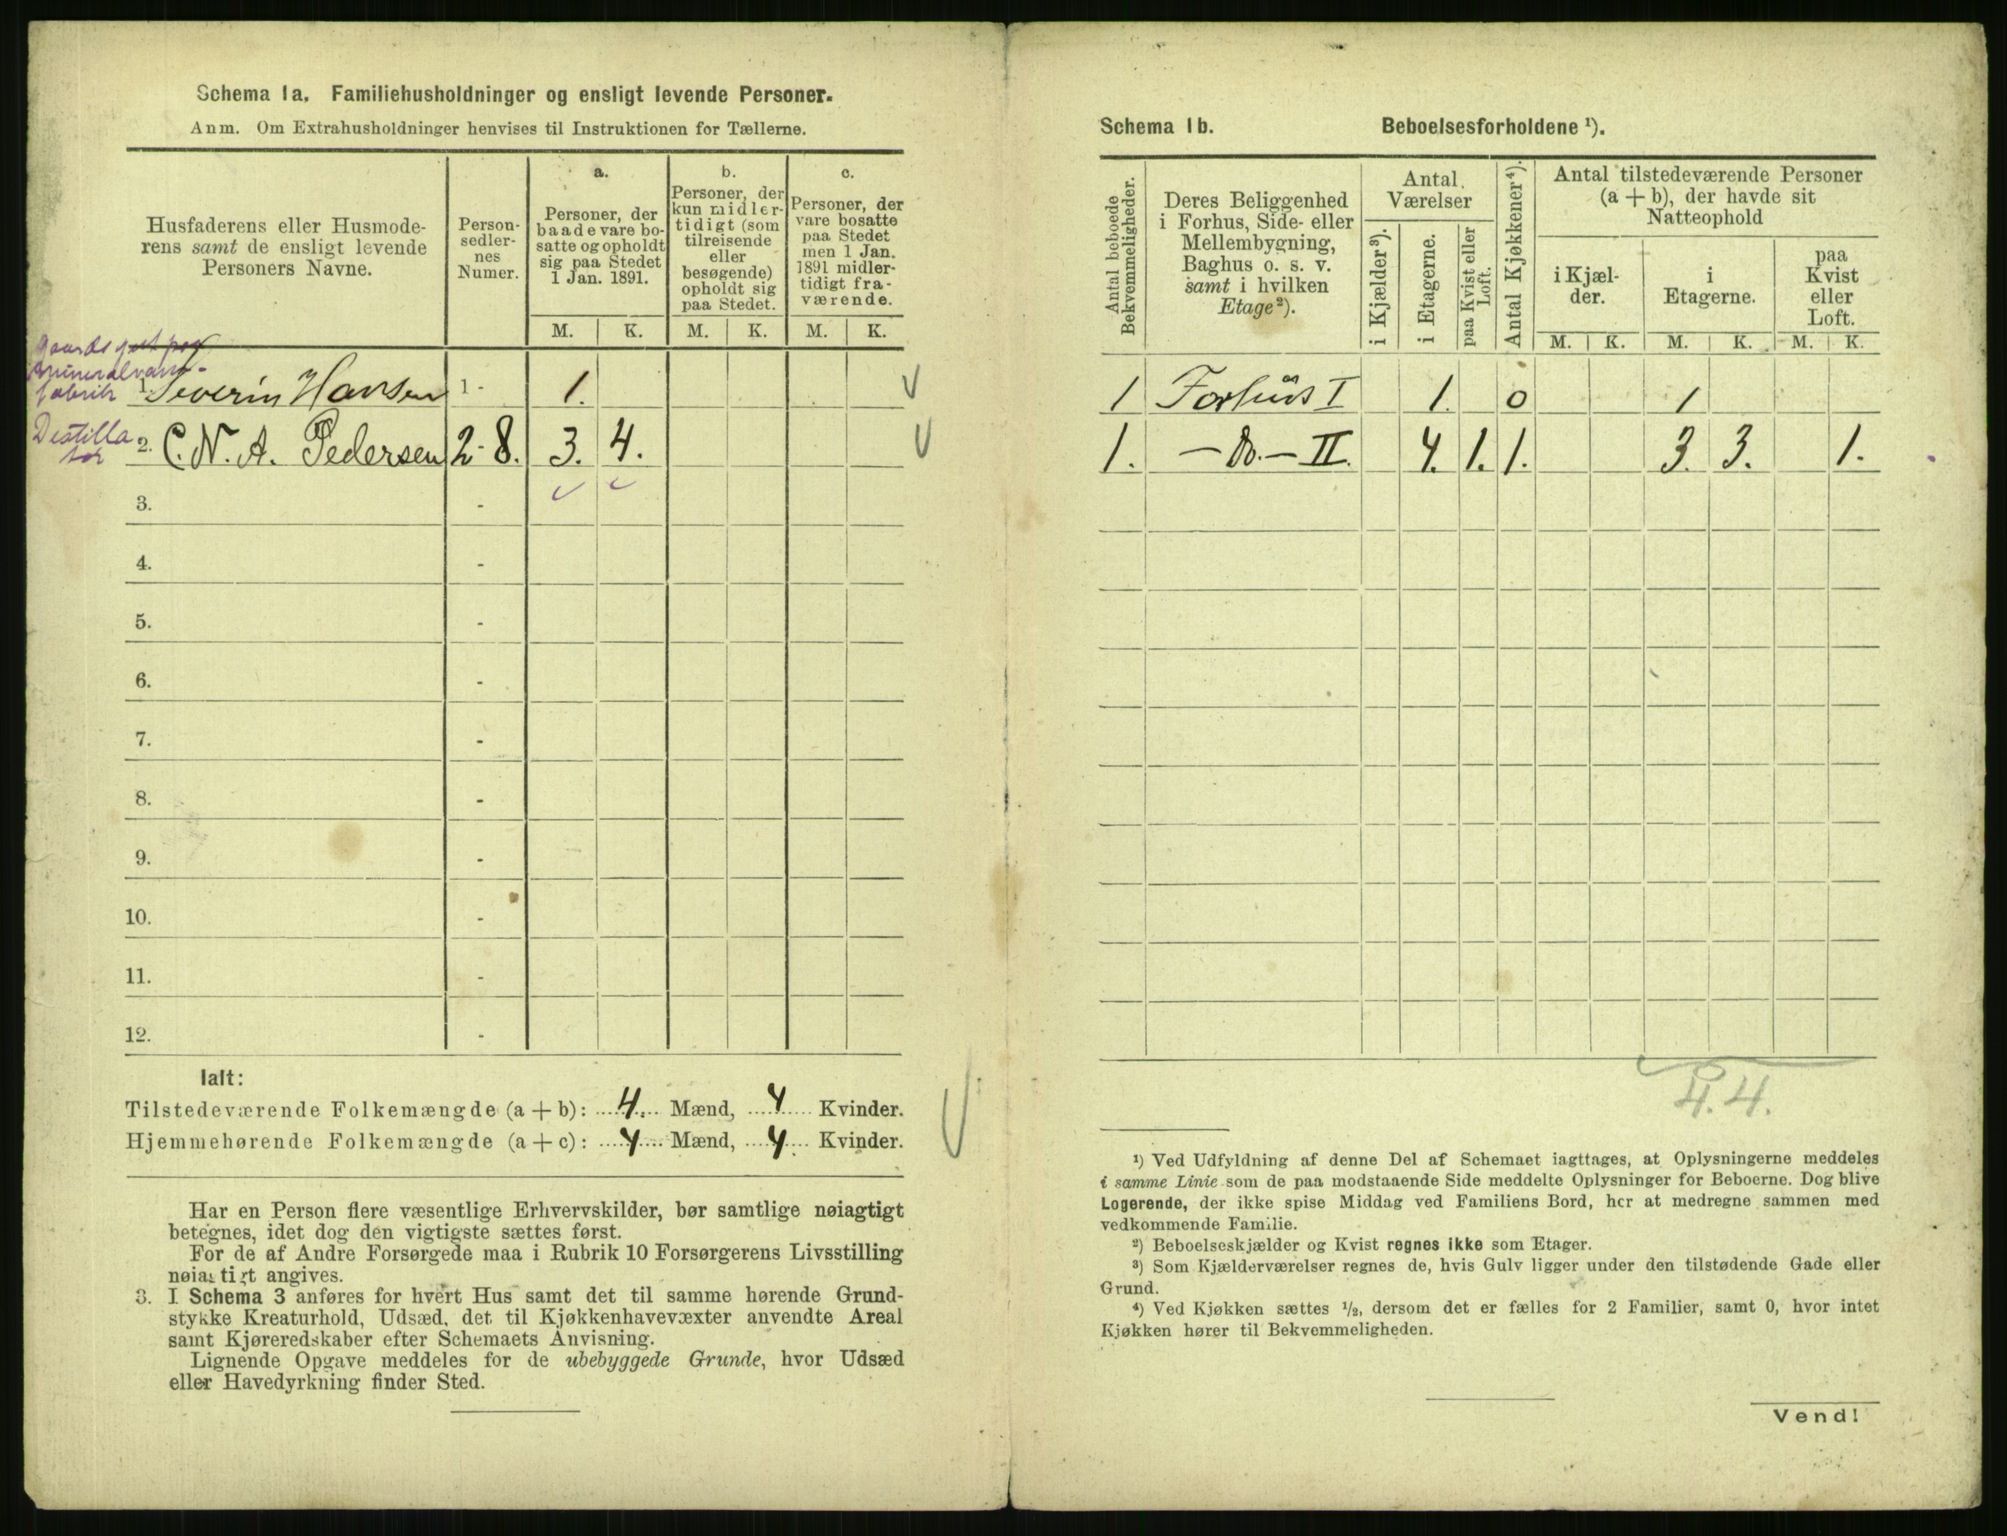 Schema 1a. Familiehusholdninger og ensligt levende Personer.
Anm. Om Extrahusholdninger henvises til Instruktionen for Tællerne.
Husfaderens eller Husmode-
rens samt de ensligt levende
Personers Navne.
Person-
sedler-
nes
Numer.
a.
Personer, der
baade vare bo-
satte og opholdt
sig paa Stedet
1 Jan. 1891.
b.
Personer, der
kun midler-
tidigt (som
tilreisende
eller
besøgende)
opholdt sig
paa Stedet.
c.
Personer, der
vare bosatte
paa Stedet
men 1 Jan.
1891 midler-
tidigt fra-
værende.
M. K. M. K. M. K.
Mineralvan-
fabrik 1. Severin Hansen 1 - 1.
Destilla
tør 2. C. N. A. Pedersen 2 - 8. 3. 4.
3. -
4. -
5. -
6. -
7. -
8. -
9. -
10. -
11. -
12. -
Ialt:
Tilstedeværende Folkemængde (a + b): 4 Mænd, 4 Kvinder.
Hjemmehørende Folkemængde (a + c): 4 Mænd, 4 Kvinder.
Har en Person flere væsentlige Erhvervskilder, bør samtlige nøiagtigt
betegnes, idet dog den vigtigste sættes først.
For de af Andre Forsørgede maa i Rubrik 10 Forsørgerens Livsstilling
nøiagtigt angives.
3. I Schema 3 anføres for hvert Hus samt det til samme hørende Grund-
stykke Kreaturhold, Udsæd, det til Kjøkkenhavevæxter anvendte Areal
samt Kjøreredskaber efter Schemaets Anvisning.
Lignende Opgave meddeles for de ubebyggede Grunde, hvor Udsæd
eller Havedyrkning finder Sted.
Schema 1b. Beboelsesforholdene ¹).
Antal beboede
Bekvemmeligheder.
Deres Beliggenhed
i Forhus, Side- eller
Mellembygning,
Baghus o. s. v.
samt i hvilken
Etage²).
Antal
Værelser
i Kjælder³).
i Etagerne.
paa Kvist eller
Loft.
Antal Kjøkkener⁴).
Antal tilstedeværende Personer
(a + b), der havde sit
Natteophold
i Kjæl-
der.
i
Etagerne.
paa
Kvist
eller
Loft.
M. K. M. K. M. K.
1 Forhus I 1. 0 1
1. - Do. - II. 4. 1. 1. 3. 3. 1.
4. 4.
¹) Ved Udfyldning af denne Del af Schemaet iagttages, at Oplysningerne meddeles
i samme Linie som de paa modstaaende Side meddelte Oplysninger for Beboerne. Dog blive
Logerende, der ikke spise Middag ved Familiens Bord, her at medregne sammen med
vedkommende Familie.
²) Beboelseskjælder og Kvist regnes ikke som Etager.
³) Som Kjælderværelser regnes de, hvis Gulv ligger under den tilstødende Gade eller
Grund.
⁴) Ved Kjøkken sættes ½, dersom det er fælles for 2 Familier, samt 0, hvor intet
Kjøkken hører til Bekvemmeligheden.
Vend!